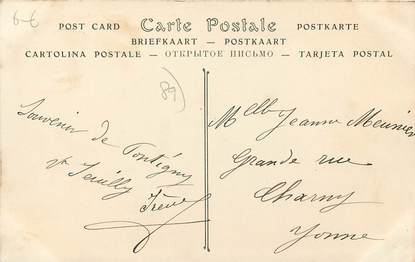 6 €
POST CARD Carte Postale POSTKARTE
BRIEFKAART - POSTKAART
CARTOLINA POSTALE - ОТКРЫТОЕ ПИСЬМО - TARJETA POSTAL
(89)
Souvenir de Pontigny
Irène
Melle Jeanne Meunier
Grande rue
Charny
Yonne